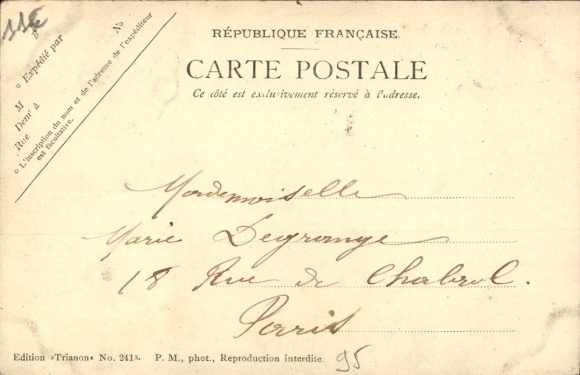 115
No
Expédié par
M
Demt à
Rue
L'inscription du nom et de l'adresse de l'expéditeur
est facultative.
RÉPUBLIQUE FRANÇAISE.
CARTE POSTALE
Ce côté est exclusivement réservé à l'adresse.
Mademoiselle
Marie Degrange
18 Rue de Chabrol.
Paris
Edition «Trianon» No. 241a. P. M., phot., Reproduction interdite.
95